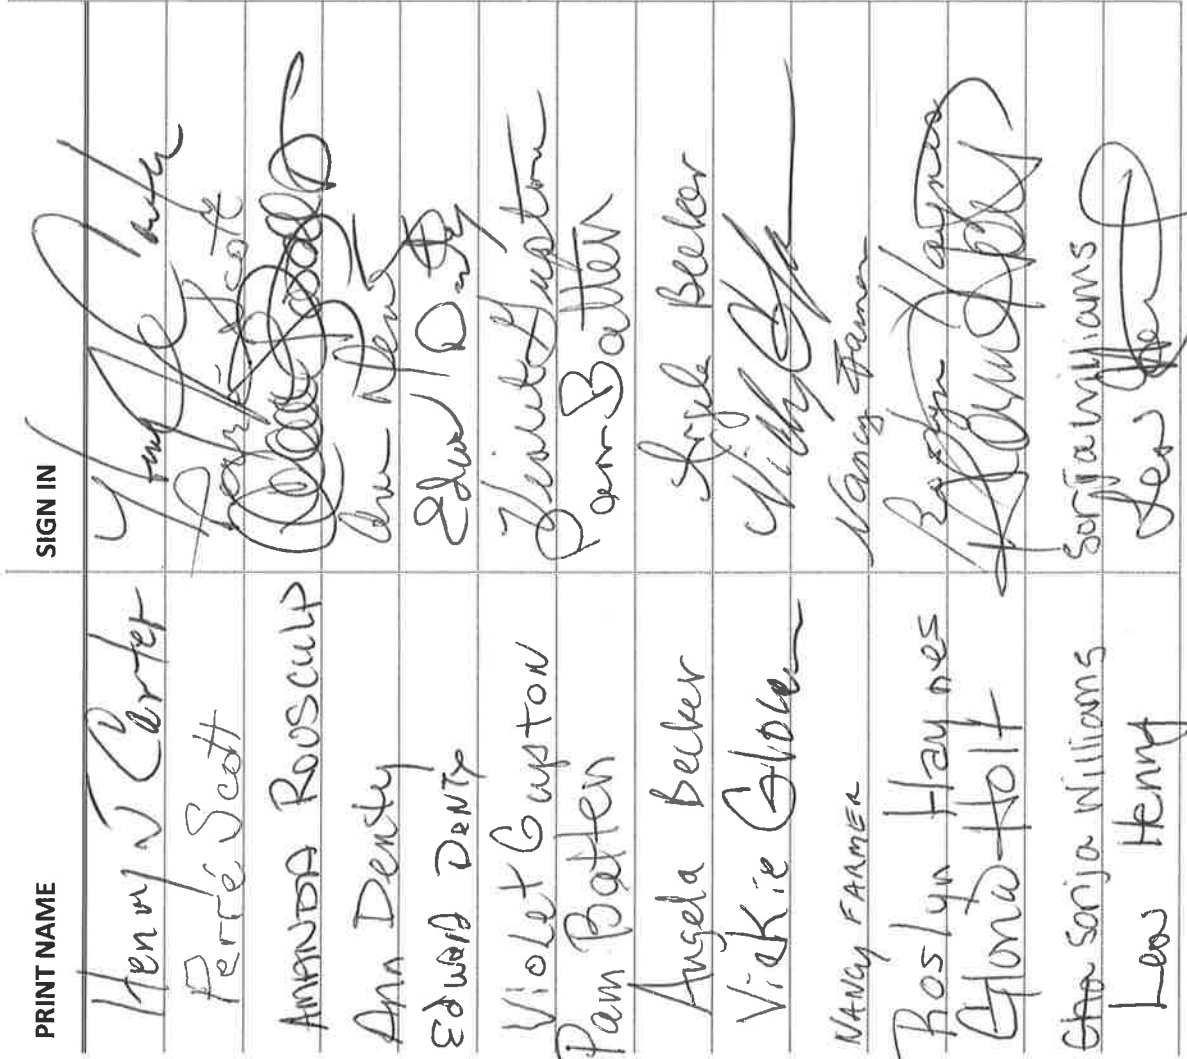 PRINT NAME SIGN IN
Henry J Carter
Perré Scott
AMANDA ROUSCULP
Ann Denty Ann Denty
Edward DENTY Edward Denty
Violet Guyton Violet Guyton
Pam Batten Pam Batten
Angela Becker Angela Becker
Vickie Glover
NANCY FARMER Nancy Farmer
Roslyn Haynes Roslyn Haynes
Holt
Sonja Williams Sonja Williams
Leo Henry Leo